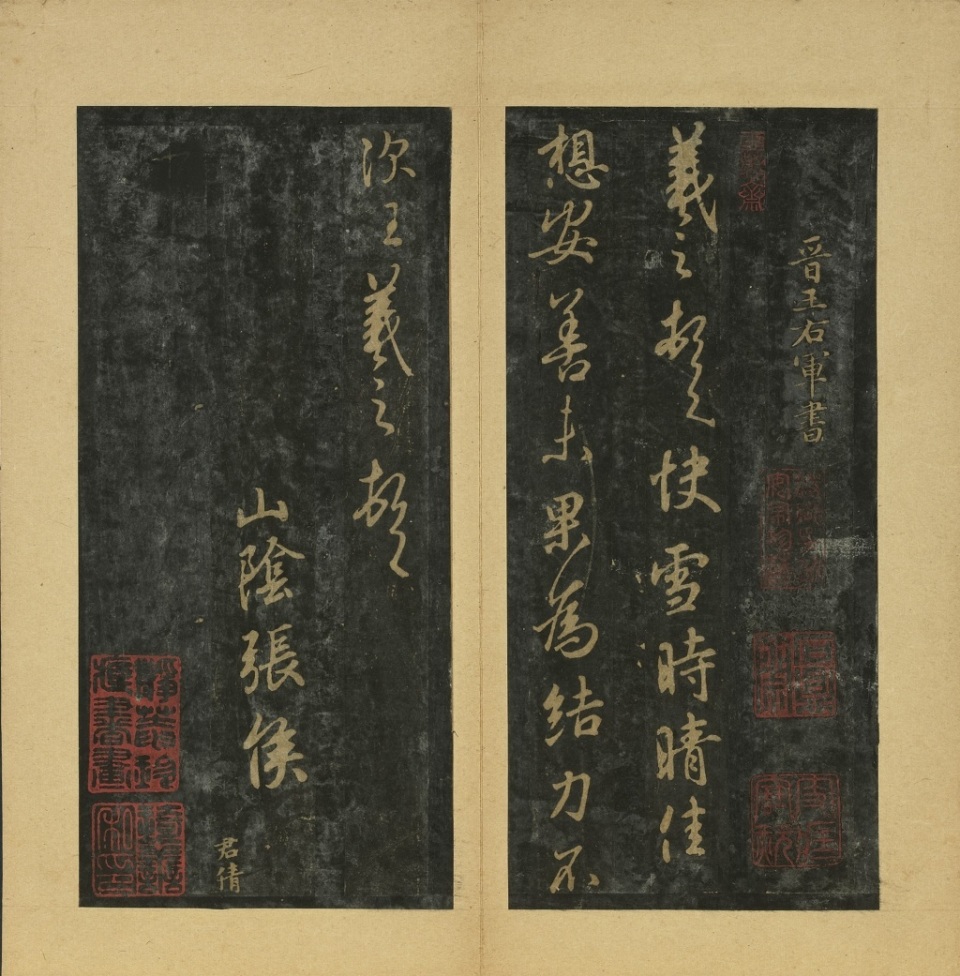 晋王右軍書
羲之頓首快雪時晴佳
想安善未果為結力不
次王羲之頓首
山陰張侯
君倩